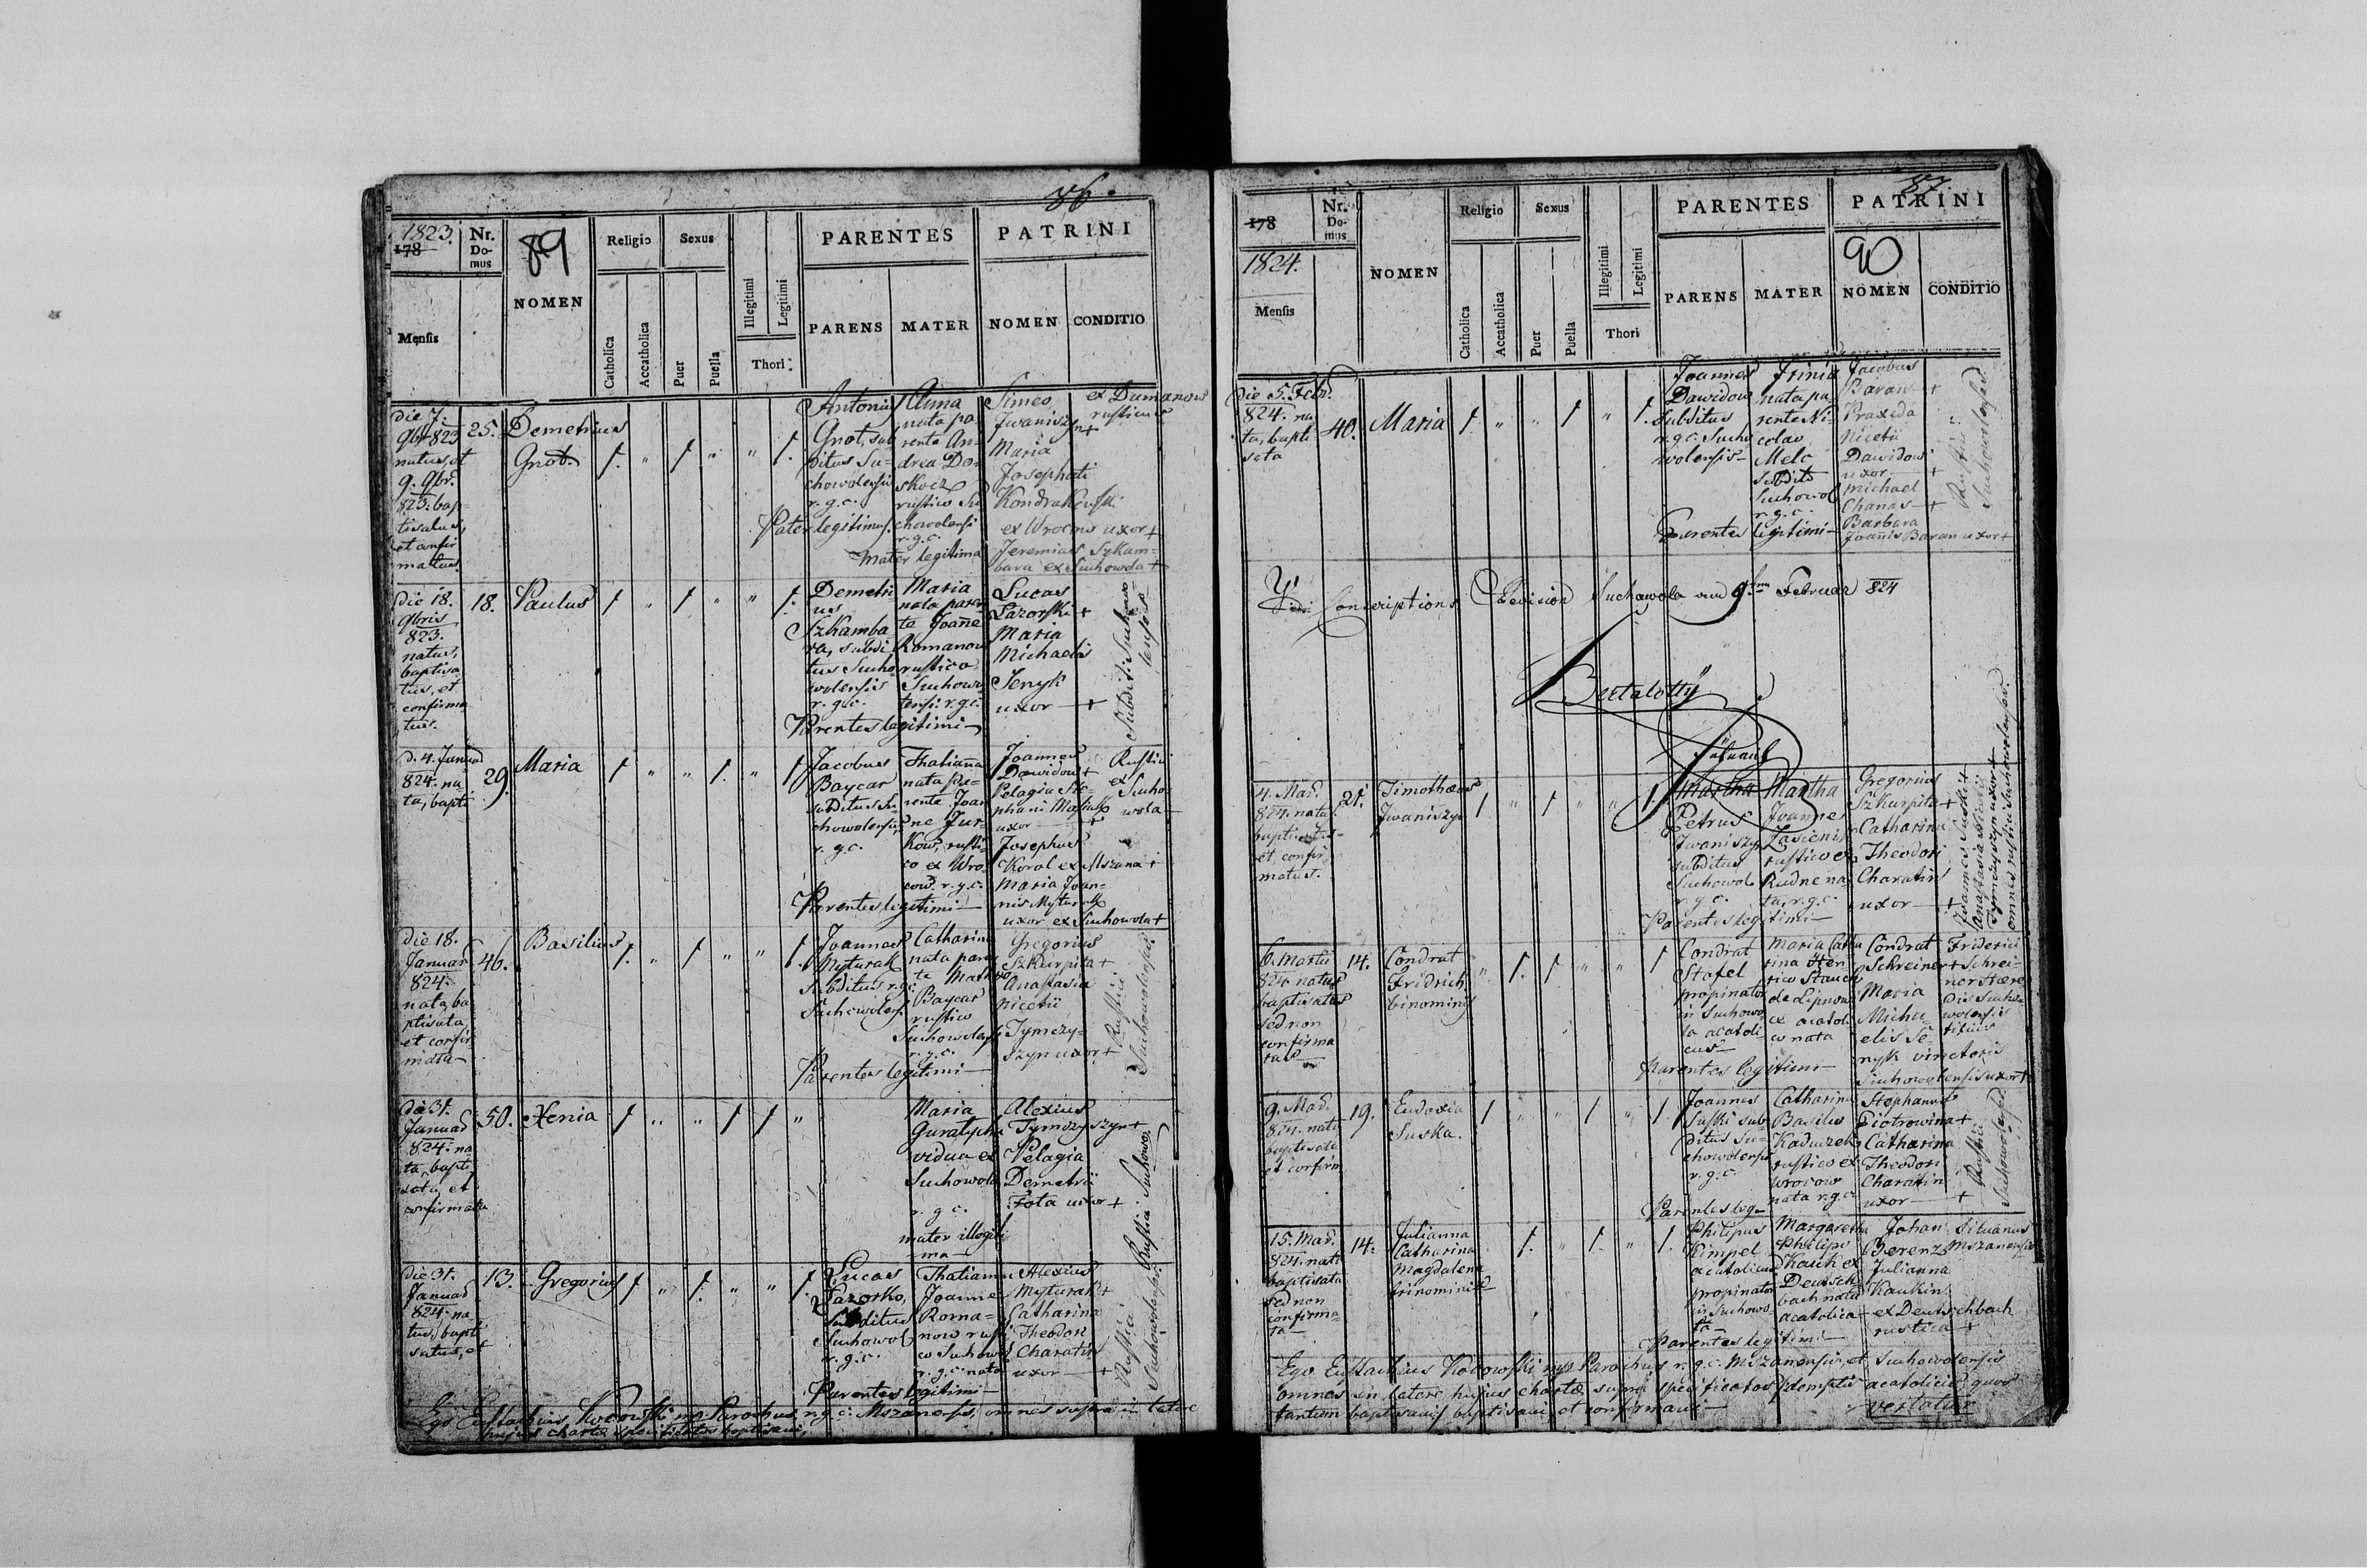 86.
1823.
178
Nr. Domus
89
NOMEN
Religio
Sexus
PARENTES
PATRINI
Mensis
Catholica
Accatholica
Puer
Puella
Illegitimi
Legitimi
Thori
PARENS
MATER
NOMEN
CONDITIO
die 7.
9br 823
natus, et
9. 9br.
823. bap-
tisatus,
et confir
matus.
25.
Demetrius
Gnot.
1. " 1 " " 1.
Antonius
Gnot, sub
ditus Su-
chowolensis
r. g. c.
Pater legitimus.
Anna
nata pa-
rente An-
drea Do-
rustico Su
chowolensi
r. g. c.
Mater legitima
Simeo
Iwaniszyn +
Maria
Josephati
ex Wrocow uxor +
Jeremias Szkam-
bara ex Suchowola +
ex Dumanow
rusticus
die 18.
9bris
823.
natus,
baptisa
tus, et
confirma
tus.
18.
Paulus
1 " 1 " " 1.
Demetri
us
Szkamba
ra, subdi
tus Sucho
wolensis
r. g. c.
Parentes legitimi
Maria
nata paren
te Joanne
Romanow
rustico
Suchowo
lensi r. g. c.
Lucas
Lazorski +
Maria
Michaelis
Senyk
uxor +
Subditi Suchowo-
lenses
d. 4. Januar
824. na
ta, bapti
29.
Maria
1 " " 1. " 1
Jacobus
Baycar
subditus Su
chowolensis
r. g. c.
Parentes legitimi
Thatianna
nata pa-
rente Joan
ne Jur-
kow, rusti-
co ex Wro-
cow. r. g. c.
Joannes
Dawidow +
Pelagia Ste-
phani
uxor +
Josephus
Korol ex Mszana +
Maria Joan-
nis Myturak
uxor ex Suchowola +
Rustici
ex Sucho
wola
die 18.
Januar
824.
nata, ba
ptisata
et confir
mata
46.
Basilius
1. " 1 " " 1.
Joannes
Myturak
subditus r. g. c.
Suchowolens
Parentes legitimi
Catharina
nata paren
te
Baycar
rustico
Suchowolensi
r. g. c.
Gregorius
Szkurpita +
Anastasia
Nicetii
Tymczy-
szyn uxor +
Rustici
Suchowolenses
die 31.
Januar
824. na
ta, bapti
sata, et
confirmata
50.
Xenia
1 " " 1 1 "
Maria
vidua ex
Suchowola
r. g. c.
mater illegiti
ma
Alexius
Tymczyszyn +
Pelagia
Demetrii
Fota uxor +
Rustici Suchowo
die 31.
Januar
824. na
tus, bapti
satus, et
13.
Gregorius
1 " 1. " " 1.
Lucas
Lazorko,
subditus
Suchowol
r. g. c.
Parentes legitimi
Thatianna
Joanne
Roma-
now rusti
co Suchowol
r. g. c. nata
Alexius
Myturak +
Catharina
Theodori
Charatin
uxor +
Rustici
Suchowolenses
Ego Eustachius Kocowski mp Parochus r. g. c. Mszanensis, omnes supra in latere
hujus chartæ specificatos baptisavi,
87.
178
Nr. Domus
1824.
Mensis
NOMEN
Religio
Sexus
Catholica
Accatholica
Puer
Puella
Illegitimi
Legitimi
Thori
PARENTES
PATRINI
90
PARENS
MATER
NOMEN
CONDITIO
Die 5. Febr.
824. na
ta, bapti
sata
40.
Maria
1. " " 1 " 1.
Joannes
Dawidow
subditus
r. g. c. Sucho
wolensis
Parentes legitimi
Irinia
nata pa-
rente Ni-
colao
Melc
subdito
Suchowol
r. g. c.
Jacobus
Baran +
Praxeda
Nicetii
Dawidow
uxor +
Michael
Chanas +
Barbara
Joannis Baran uxor +
Rustici
Suchowolenses
Conscriptions Revision Suchowola am 9ten Februar 824
Bertalotty
4. Mar.
824. natus
baptisatus
et confir
matus.
21.
Timothæus
Iwaniszyn
1 " 1 " " 1
Petrus
Iwaniszyn
subditus
Suchowol
r. g. c.
Parentes legitimi
Martha
Joanne
rustico ex
Rudne na
ta, r. g. c.
Gregorius
Szkurpita +
Catharina
Theodori
Charatin
uxor +
Joannes Suski +
Anastasia Nicetii
Tymczyszyn uxor +
omnes rustici Suchowolenses.
6. Martii
824 natus
baptisatus
sed non
confirma
tus
14.
Condrat
Fridrich
binominis
" 1. 1 " " 1
Condrat
Stofel
propinator
in Suchowo
la acatoli
cus
Parentes legitimi
Maria Catha
rina Hen-
rico Stauch
de Lipowi
ce acatoli
co nata
Condrat
Schreiner +
Maria
Micha-
elis Se-
nyk vinctoris
Suchowolensis uxor +
Friderici
Schrei-
ner
9. Mar.
824. nata
baptisata
et confirm
19.
Eudoxia
Suska.
1 " " 1 " 1.
Joannes
Suski sub-
ditus Su-
chowolensis
r. g. c.
Parentes leg
Catharina
Basilio
rustico ex
Wrocow
nata r. g. c.
Stephanus
Piotrowina +
Catharina
Theodori
Charatin
uxor +
Rustici
Suchowolenses
15. Mar.
824. nata
baptisata
sed non
confirma-
ta
14.
Julianna
Catharina
Magdalena
trinominis
1. " 1. " 1.
Philipus
Kimpel
acatolicus
propinator
in Suchowo
la
Parentes legitimi
Margaretha
Philipo
Kauk ex
Deutsch
bach nata
acatolica
Johan
Berenz
Julianna
Kaukin
ex Deutschbach
rustica +
Mszanensis
Ego Eustachius Kocowski mp Parochus r. g. c. Mszanensis, et Suchowolensis
omnes in latere hujus chartæ supra specificatos demptis acatolicis quos
tantum baptisavi, baptisavi et confirmavi
vertatur